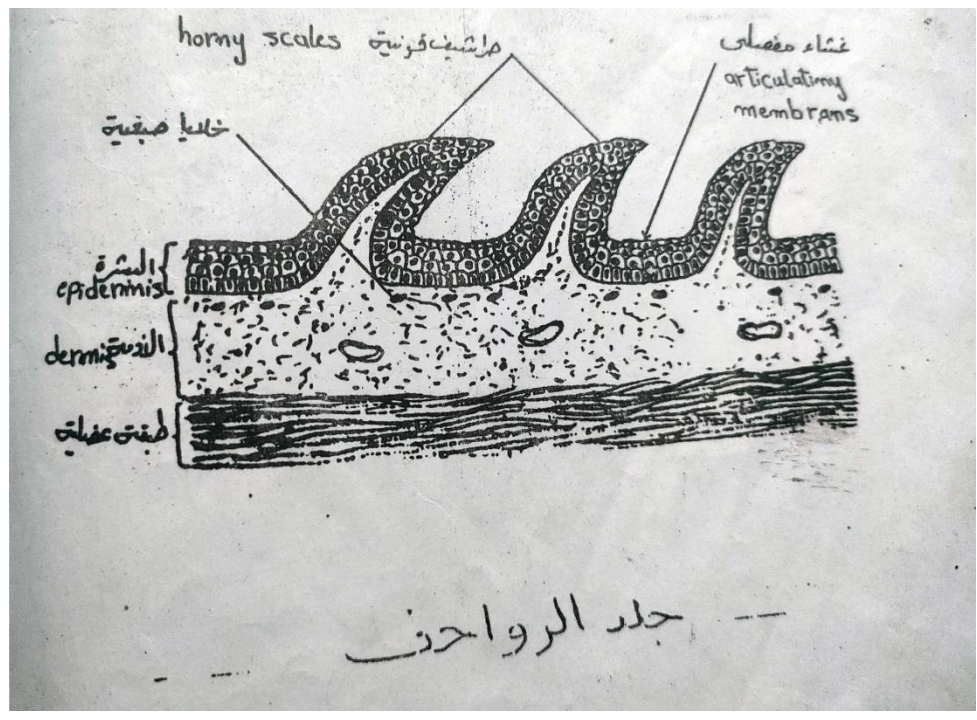 horny scales حراشيف قرنية
غشاء مفصلي
articulatimy
membrans
خلايا صبغية
البشرة
epidermis
الادمة
dermis
طبقة عضلية
جلد الزواحف